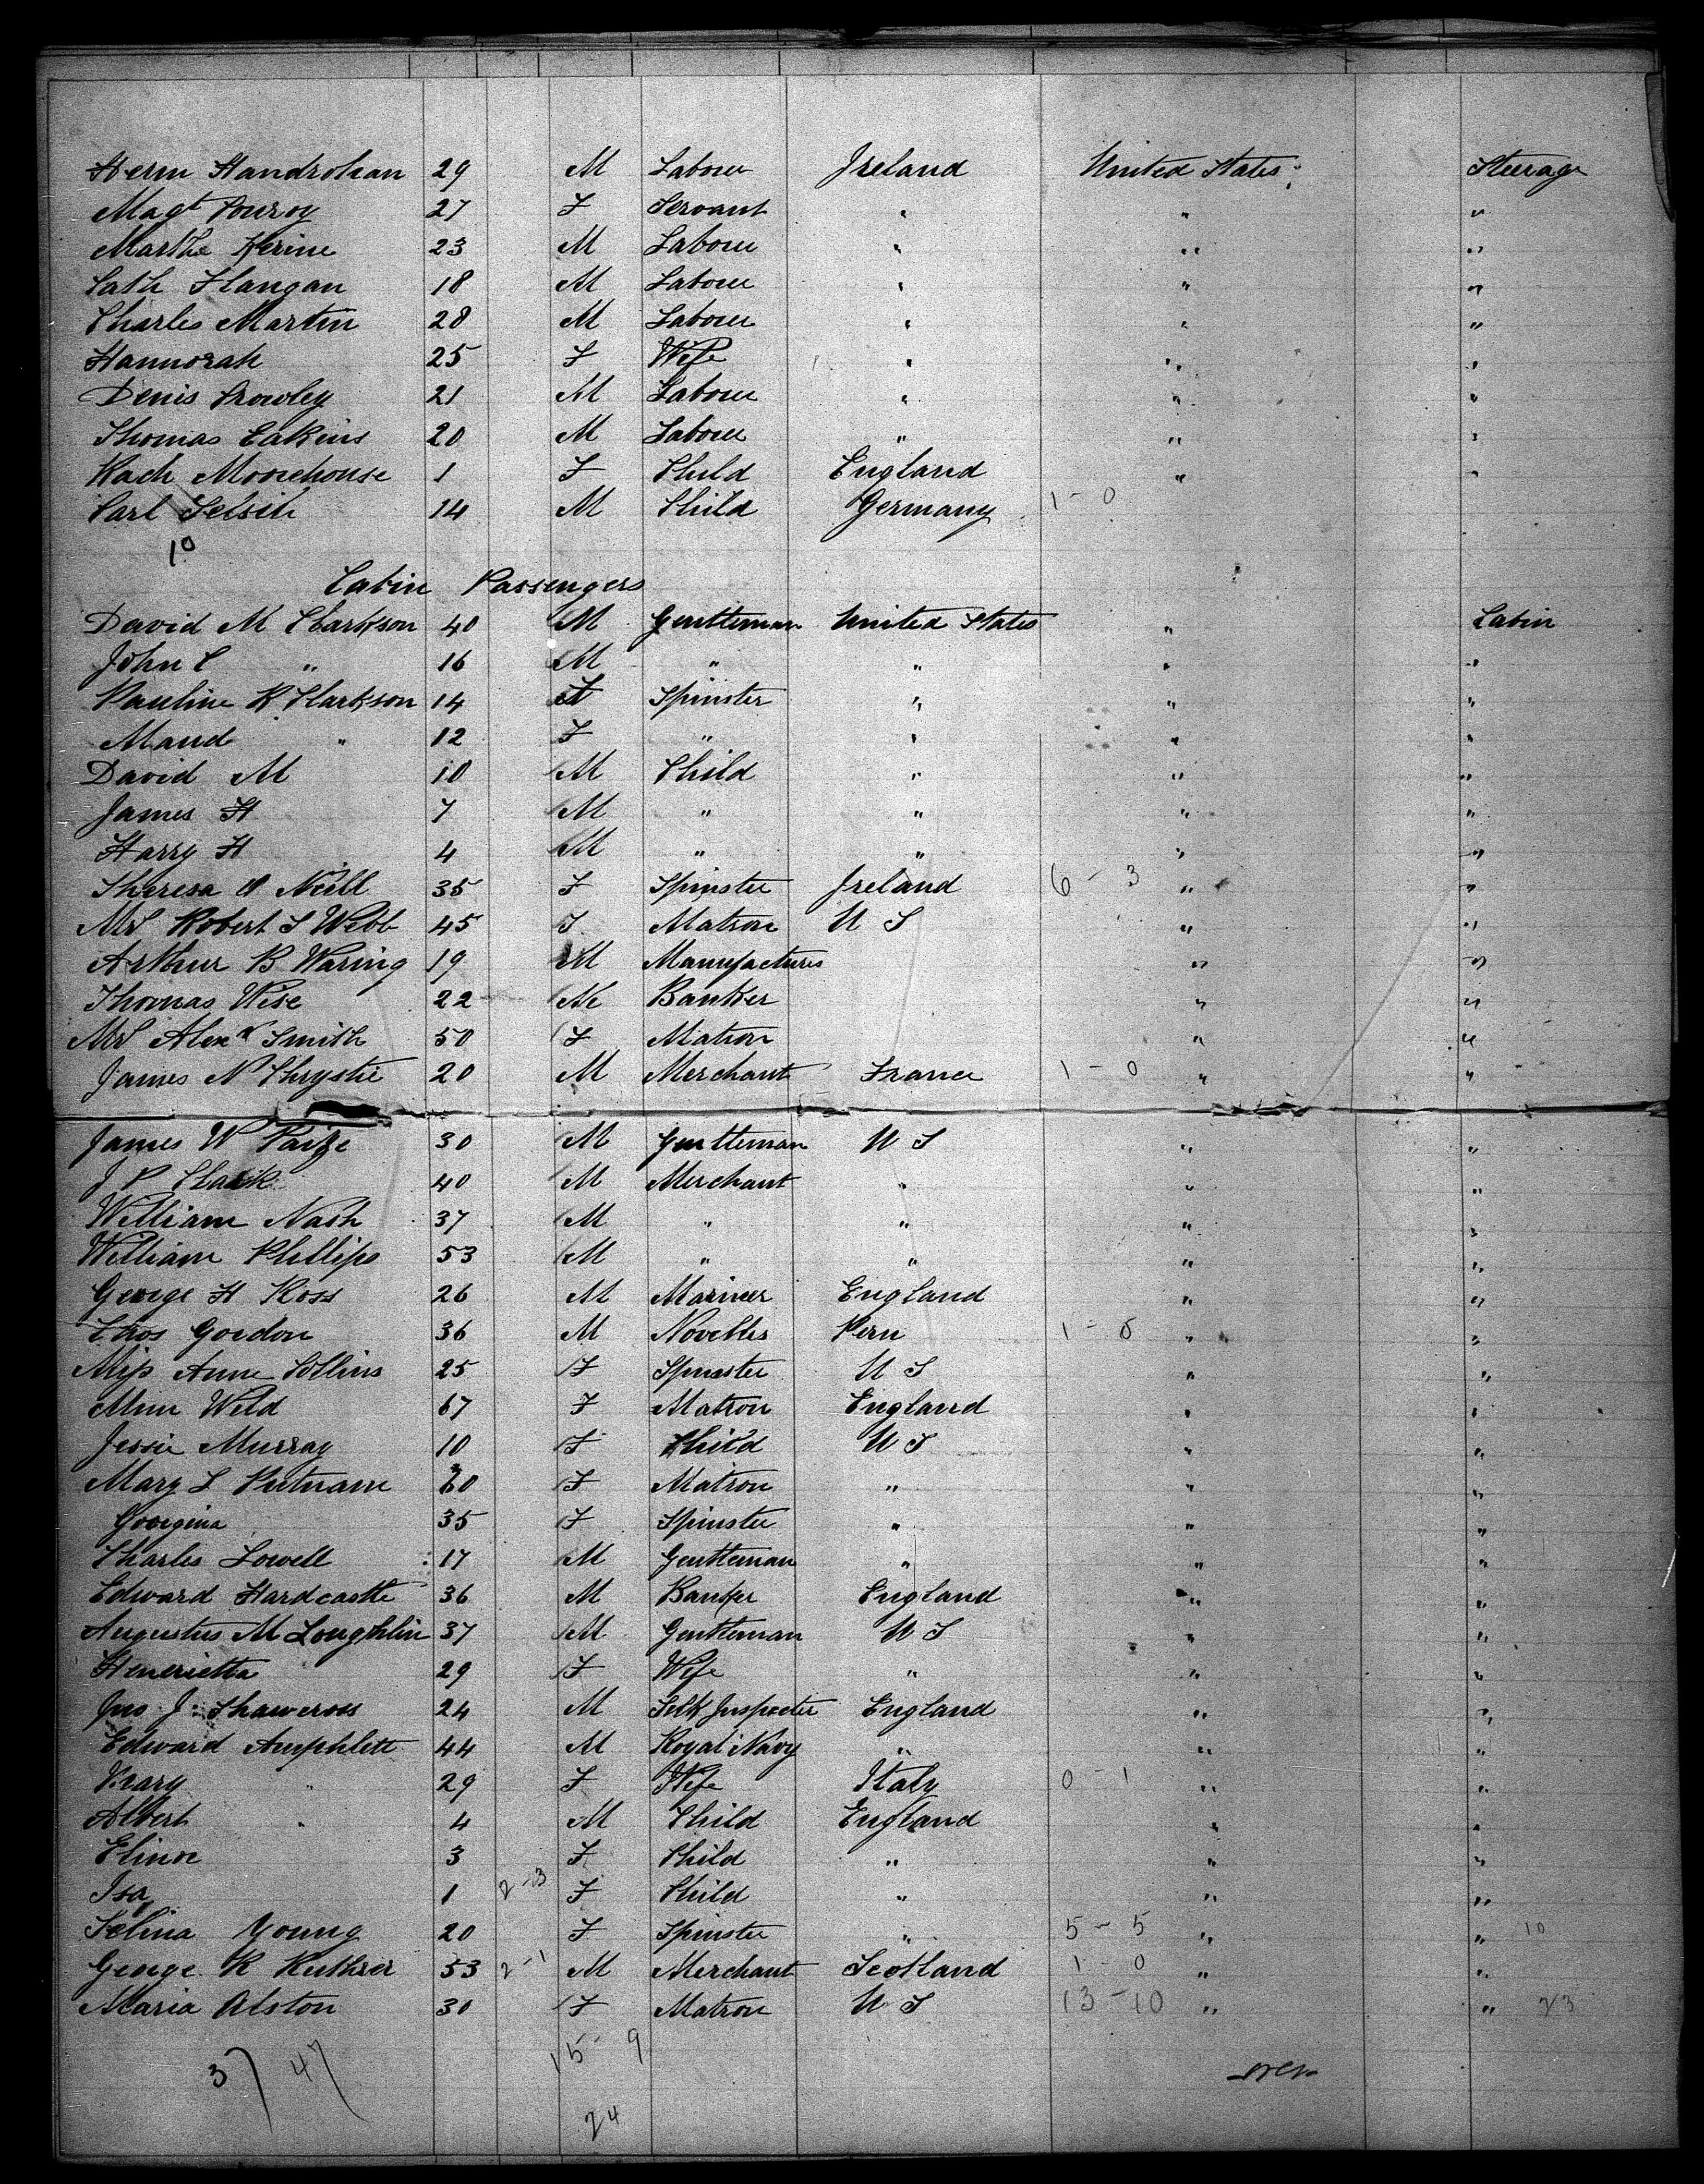 Herm Handrohan 29 M Labour Ireland United States Steerage
Magt Conroy 27 F Servant " " "
Martha Kerine 23 M Labour " " "
Cath Flangan 18 M Labour " " "
Charles Martin 28 M Labour " " "
Hannorah 25 F Wife " " "
Denis Crowley 21 M Labour " " "
Thomas Eakins 20 M Labour " " "
Rach Moorehouse 1 F Child England " "
Carl 14 M Child Germany 1 - 0
10
Cabin Passengers
David M Clarkson 40 M Gentleman United States " Cabin
John C " 16 M " " " "
Pauline R Clarkson 14 F Spinster " " "
Maud " 12 F " " " "
David M 10 M Child " " "
James H 7 M " " " "
Harry H 4 M " " " "
Theresa O Neill 35 F Spinster Ireland 6 - 3 " "
Mrs Robert S Webb 45 F Matron U S " "
Arthur B Waring 19 M Manufactures " "
Thomas Wise 22 M Banker " "
Mrs Alexr Smith 50 F Matron " "
James N Chrystie 20 M Merchant France 1 - 0 " "
James W Paige 30 M Gentleman U S " "
J P Clark 40 M Merchant " " "
William Nash 37 M " " " "
William Phillips 53 M " " " "
George H Ross 26 M Mariner England " "
Thos Gordon 36 M Novelties Peru 1 - 0 " "
Miss Anne Collins 25 F Spinster U S " "
Mim Weld 67 F Matron England " "
Jessie Murray 10 F Child U S " "
Mary L Putnam 60 F Matron " " "
Georgina 35 F Spinster " " "
Charles Lowell 17 M Gentleman " " "
Edward Hardcastle 36 M Banker England " "
Augustus M Loughlin 37 M Gentleman U S " "
Henrietta 29 F Wife " " "
Jno J Shawcross 24 M Silk Inspector England " "
Edward Amphlett 44 M Royal Navy " " "
Mary " 29 F Wife Italy 0 - 1 " "
Albert " 4 M Child England " "
Elinor 3 F Child " " "
Isa 1 2 - 3 F Child " " "
Selina Young 20 F Spinster " 5 - 5 " " 10
George R 53 2 - 1 M Merchant Scotland 1 - 0 " "
Maria Alston 30 F Matron U S 13 - 10 " " 23
37 47 15 - 9
over
24